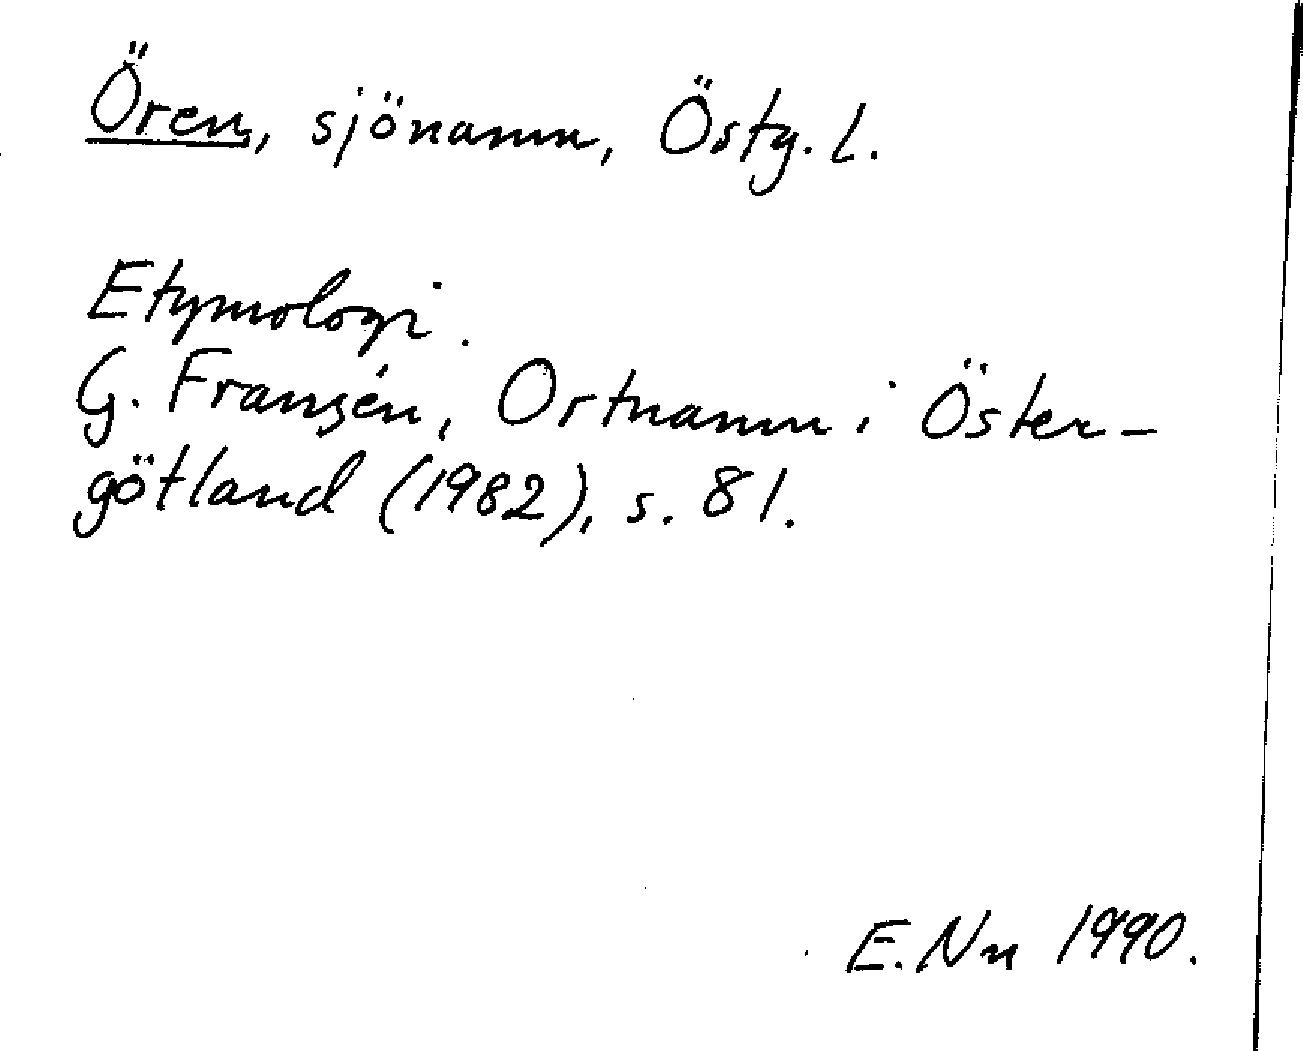 Ören, sjönamn, Östg. l.
Etymologi.
G. Fransén, Ortnamn i Öster-
götland (1982), s. 81.
E. Nn 1990.